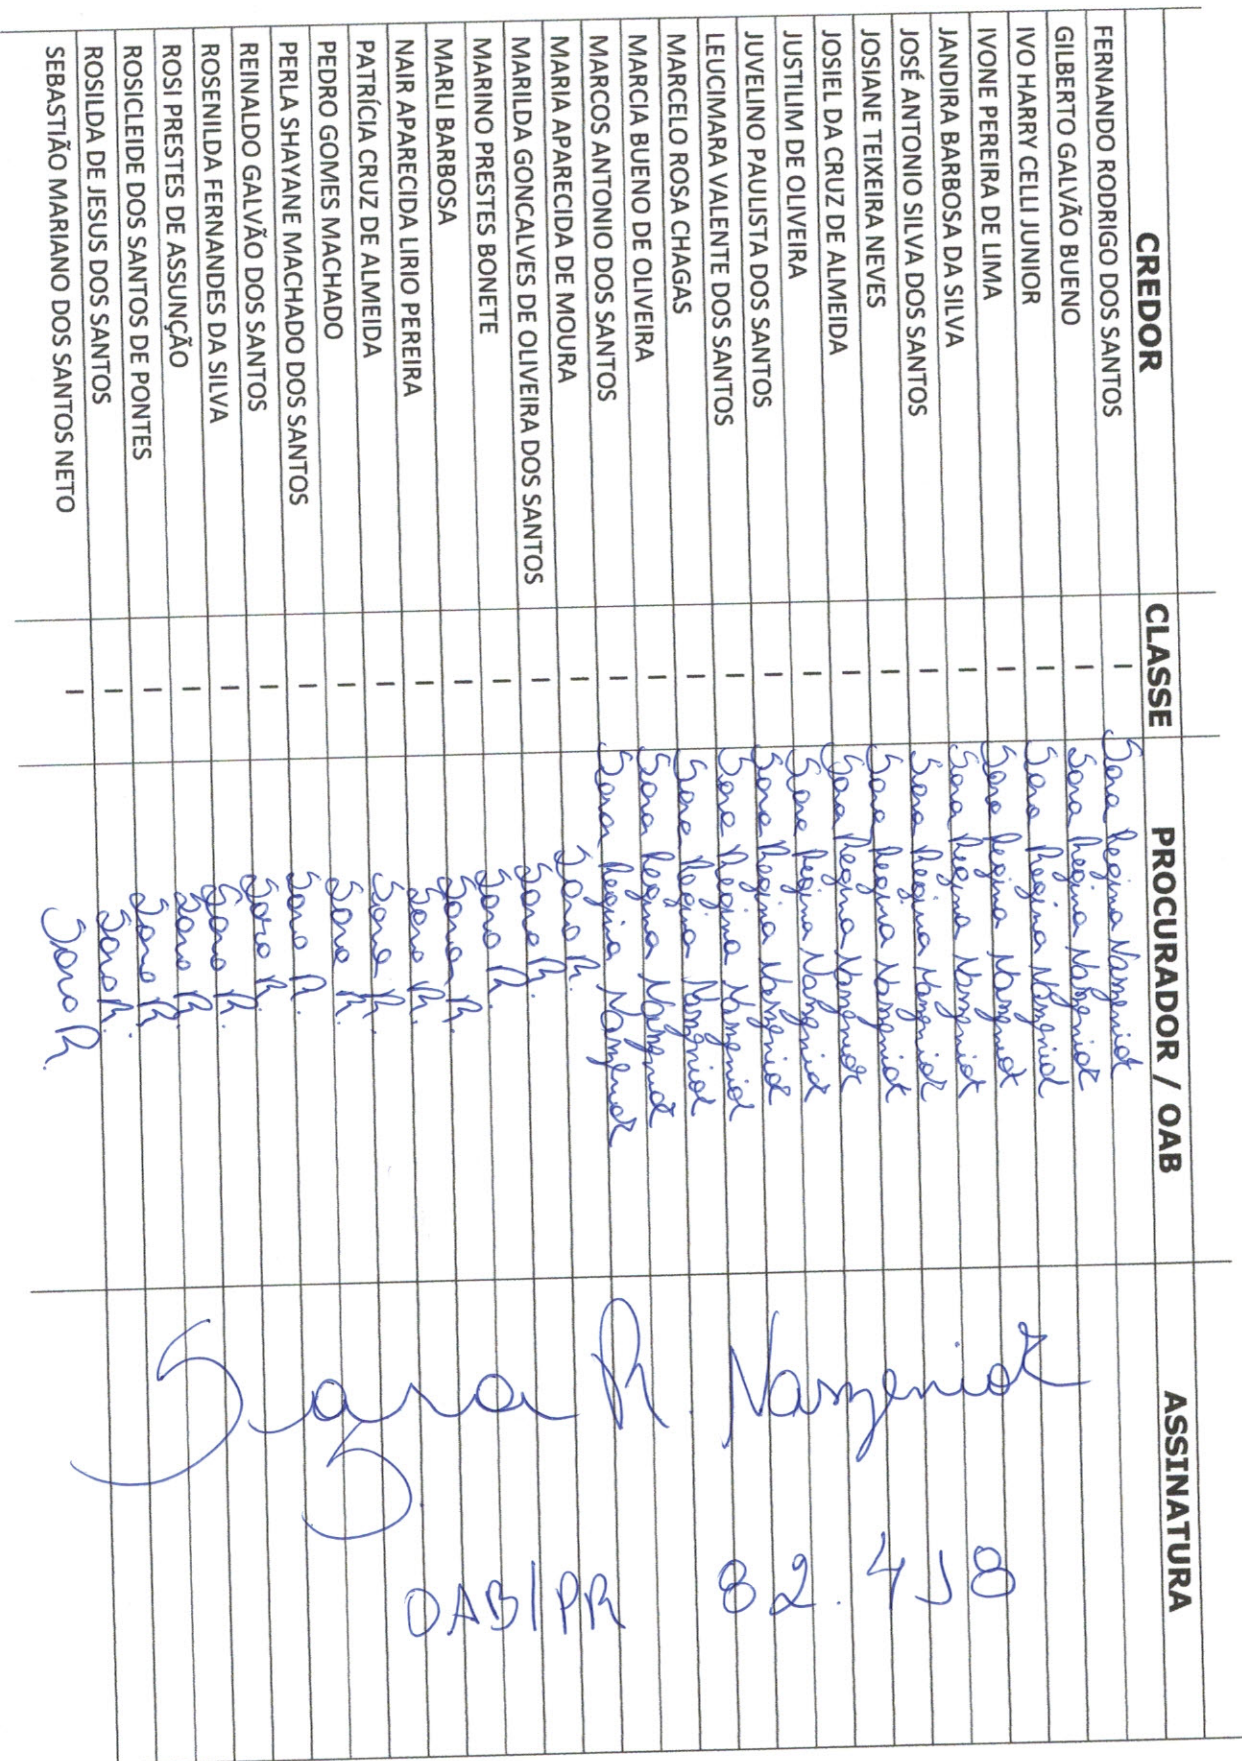 CREDOR CLASSE PROCURADOR / OAB ASSINATURA
FERNANDO RODRIGO DOS SANTOS I Sara Regina Narzeniok
GILBERTO GALVÃO BUENO I Sara Regina Narzeniok
IVO HARRY CELLI JUNIOR I Sara Regina Narzeniok
IVONE PEREIRA DE LIMA I Sara Regina Narzeniok
JANDIRA BARBOSA DA SILVA I Sara Regina Narzeniok
JOSÉ ANTONIO SILVA DOS SANTOS I Sara Regina Narzeniok
JOSIANE TEIXEIRA NEVES I Sara Regina Narzeniok
JOSIEL DA CRUZ DE ALMEIDA I Sara Regina Narzeniok
JUSTILIM DE OLIVEIRA I Sara Regina Narzeniok
JUVELINO PAULISTA DOS SANTOS I Sara Regina Narzeniok
LEUCIMARA VALENTE DOS SANTOS I Sara Regina Narzeniok
MARCELO ROSA CHAGAS I Sara Regina Narzeniok
MARCIA BUENO DE OLIVEIRA I Sara Regina Narzeniok
MARCOS ANTONIO DOS SANTOS I Sara Regina Narzeniok
MARIA APARECIDA DE MOURA I Sara R.
MARILDA GONCALVES DE OLIVEIRA DOS SANTOS I Sara R.
MARINO PRESTES BONETE I Sara R.
MARLI BARBOSA I Sara R.
NAIR APARECIDA LIRIO PEREIRA I Sara R.
PATRÍCIA CRUZ DE ALMEIDA I Sara R.
PEDRO GOMES MACHADO I Sara R.
PERLA SHAYANE MACHADO DOS SANTOS I Sara R.
REINALDO GALVÃO DOS SANTOS I Sara R.
ROSENILDA FERNANDES DA SILVA I Sara R.
ROSI PRESTES DE ASSUNÇÃO I Sara R.
ROSICLEIDE DOS SANTOS DE PONTES I Sara R.
ROSILDA DE JESUS DOS SANTOS I Sara R.
SEBASTIÃO MARIANO DOS SANTOS NETO I Sara R.
Sara R. Narzeniok
OAB/PR 82.418